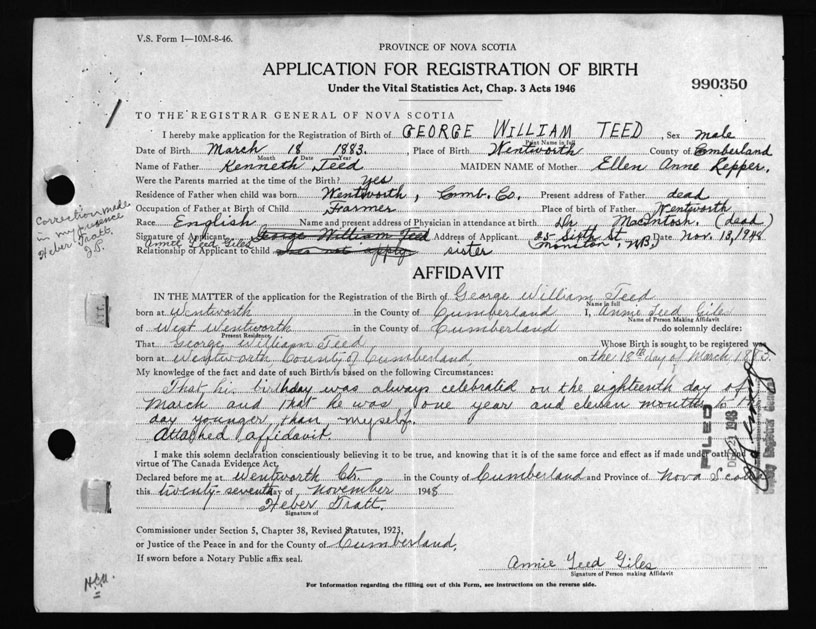 V.S. Form 1—10M-8-46.
PROVINCE OF NOVA SCOTIA
APPLICATION FOR REGISTRATION OF BIRTH
Under the Vital Statistics Act, Chap. 3 Acts 1946
990350
TO THE REGISTRAR GENERAL OF NOVA SCOTIA
I hereby make application for the Registration of Birth of GEORGE WILLIAM TEED, Sex male
Print Name in full
Date of Birth March 18 1883., Place of Birth Wentworth County of Cumberland
Month Date Year
Name of Father Kenneth Teed MAIDEN NAME of Mother Ellen Anne Lepper.
Were the Parents married at the time of the Birth? yes
Residence of Father when child was born Wentworth, Cumb. Co. Present address of Father dead
Occupation of Father at Birth of Child Farmer Place of birth of Father Wentworth
Race English Name and present address of Physician in attendance at birth Dr MacIntosh. (dead)
Signature of Applicant George William Teed Address of Applicant 25 Sixth St Date Nov. 13, 1948
Annie Teed Giles Moncton, NB,
Relationship of Applicant to child does not apply sister
Correction made
in my presence
Heber Tratt.
J.P.
AFFIDAVIT
IN THE MATTER of the application for the Registration of the Birth of George William Teed
Name in full
born at Wentworth in the County of Cumberland I, Annie Teed Giles
Name of Person Making Affidavit
of West Wentworth in the County of Cumberland do solemnly declare:
Present Residence
That George William Teed Whose Birth is sought to be registered was
born at Wentworth, County of Cumberland, on the 18th day of March 1883.
My knowledge of the fact and date of such Birth is based on the following Circumstances:
That his birthday was always celebrated on the eighteenth day of
March and that he was one year and eleven months to the
day younger than myself.
Attached affidavit.
FILED
1948
I make this solemn declaration conscientiously believing it to be true, and knowing that it is of the same force and effect as if made under oath and
virtue of The Canada Evidence Act.
Declared before me at Wentworth Ctr. in the County of Cumberland and Province of Nova Sco
this twenty-seventh day of November 1948
Heber Tratt.
Signature of
Commissioner under Section 5, Chapter 38, Revised Statutes, 1923,
or Justice of the Peace in and for the County of Cumberland.
If sworn before a Notary Public affix seal.
Annie Teed Giles
Signature of Person making Affidavit
For Information regarding the filling out of this Form, see instructions on the reverse side.